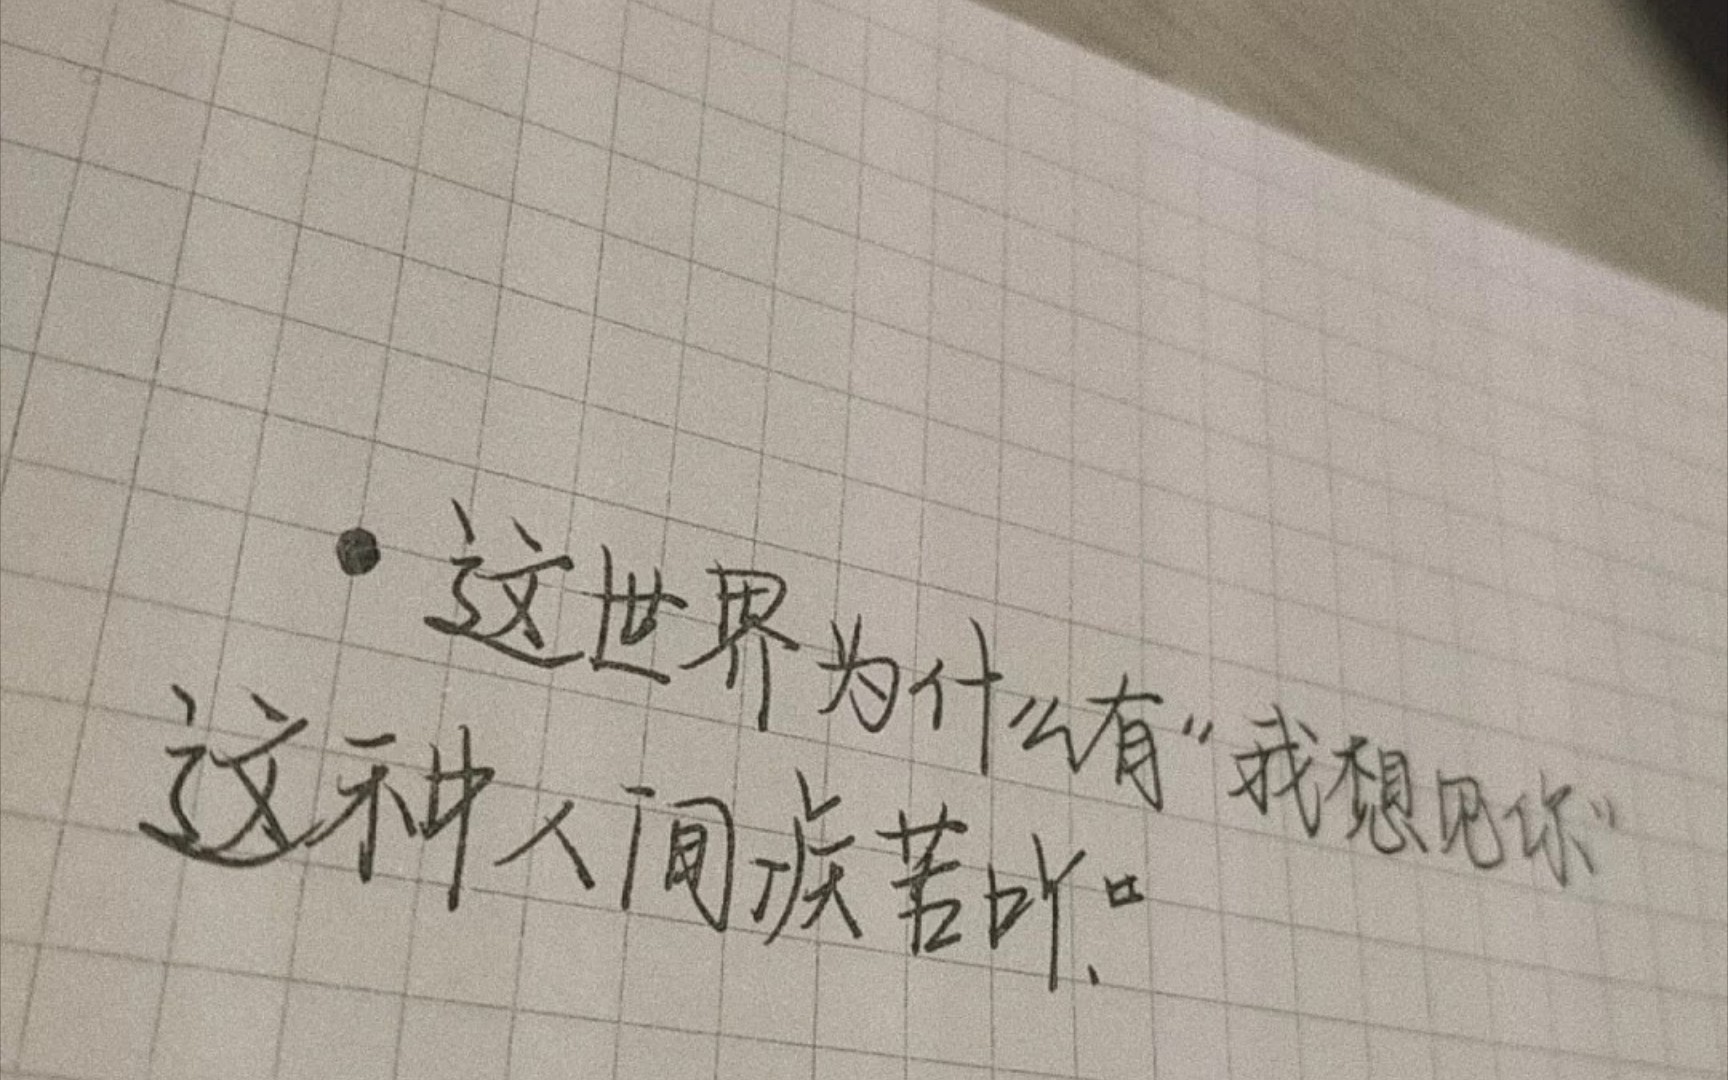 ·这世界为什么有“我想见你”
这种人间疾苦吖。